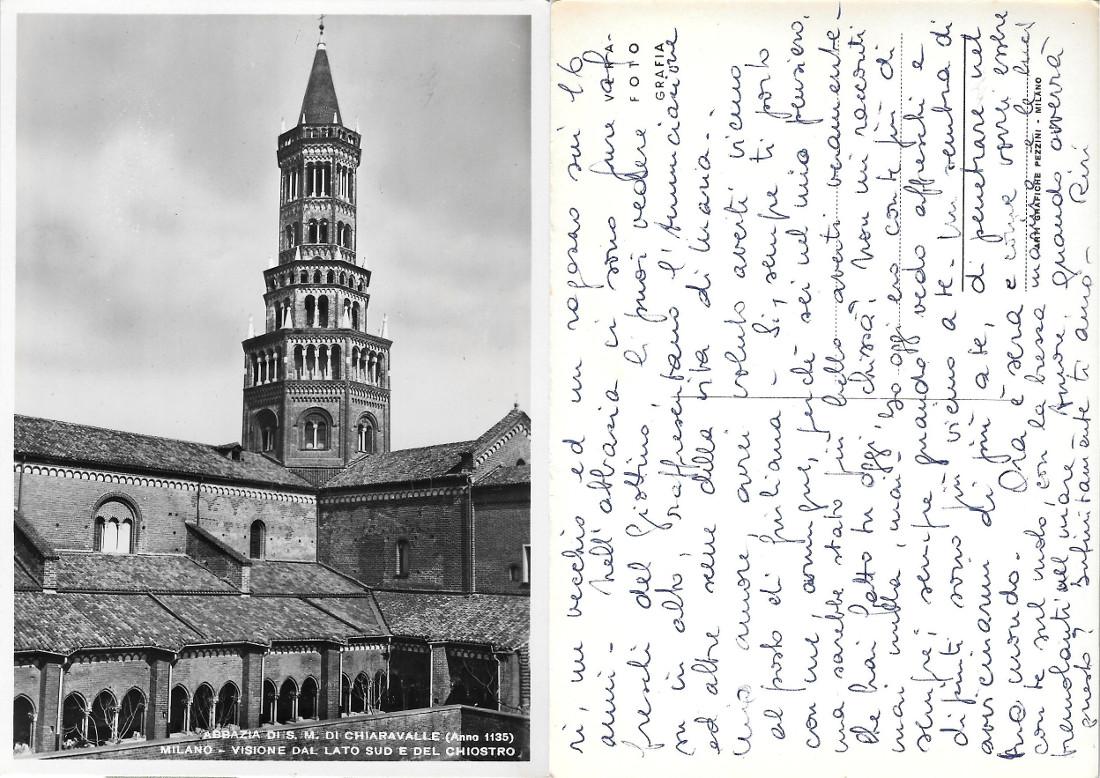 ABBAZIA DI S. M. DI CHIARAVALLE (Anno 1135)
MILANO - VISIONE DAL LATO SUD E DEL CHIOSTRO
VERA
FOTO
GRAFIA
ARTI GRAFICHE PEZZINI - MILANO
ri, un vecchio ed un ragazzo sui 16
anni - Nell'abbazia ci sono pure af-
freschi del Giottino, li puoi vedere
in alto, rappresentano l'Annunciazione
ed altre scene della vita di Maria..
Mio amore, avrei voluto averti vicino
al posto di Giuliana - Sì, sempre ti porto
con me, comunque, perchè sei nel mio pensiero,
ma sarebbe stato più bello averti veramente -
Che hai fatto tu oggi, chissà? Non mi racconti
mai nulla, mai! Io oggi ero con te più di
sempre, sempre quando vedo affreschi e
dipinti sono più vicino a te - Mi sembra di
avvicinarmi di più a te, di penetrare nel
tuo mondo. Ora è sera e come vorrei essere
con te sul molo, con la brezza marina e le luci
tremolanti nel mare. Amore quando avverrà
questo? Infinitamente ti amo -